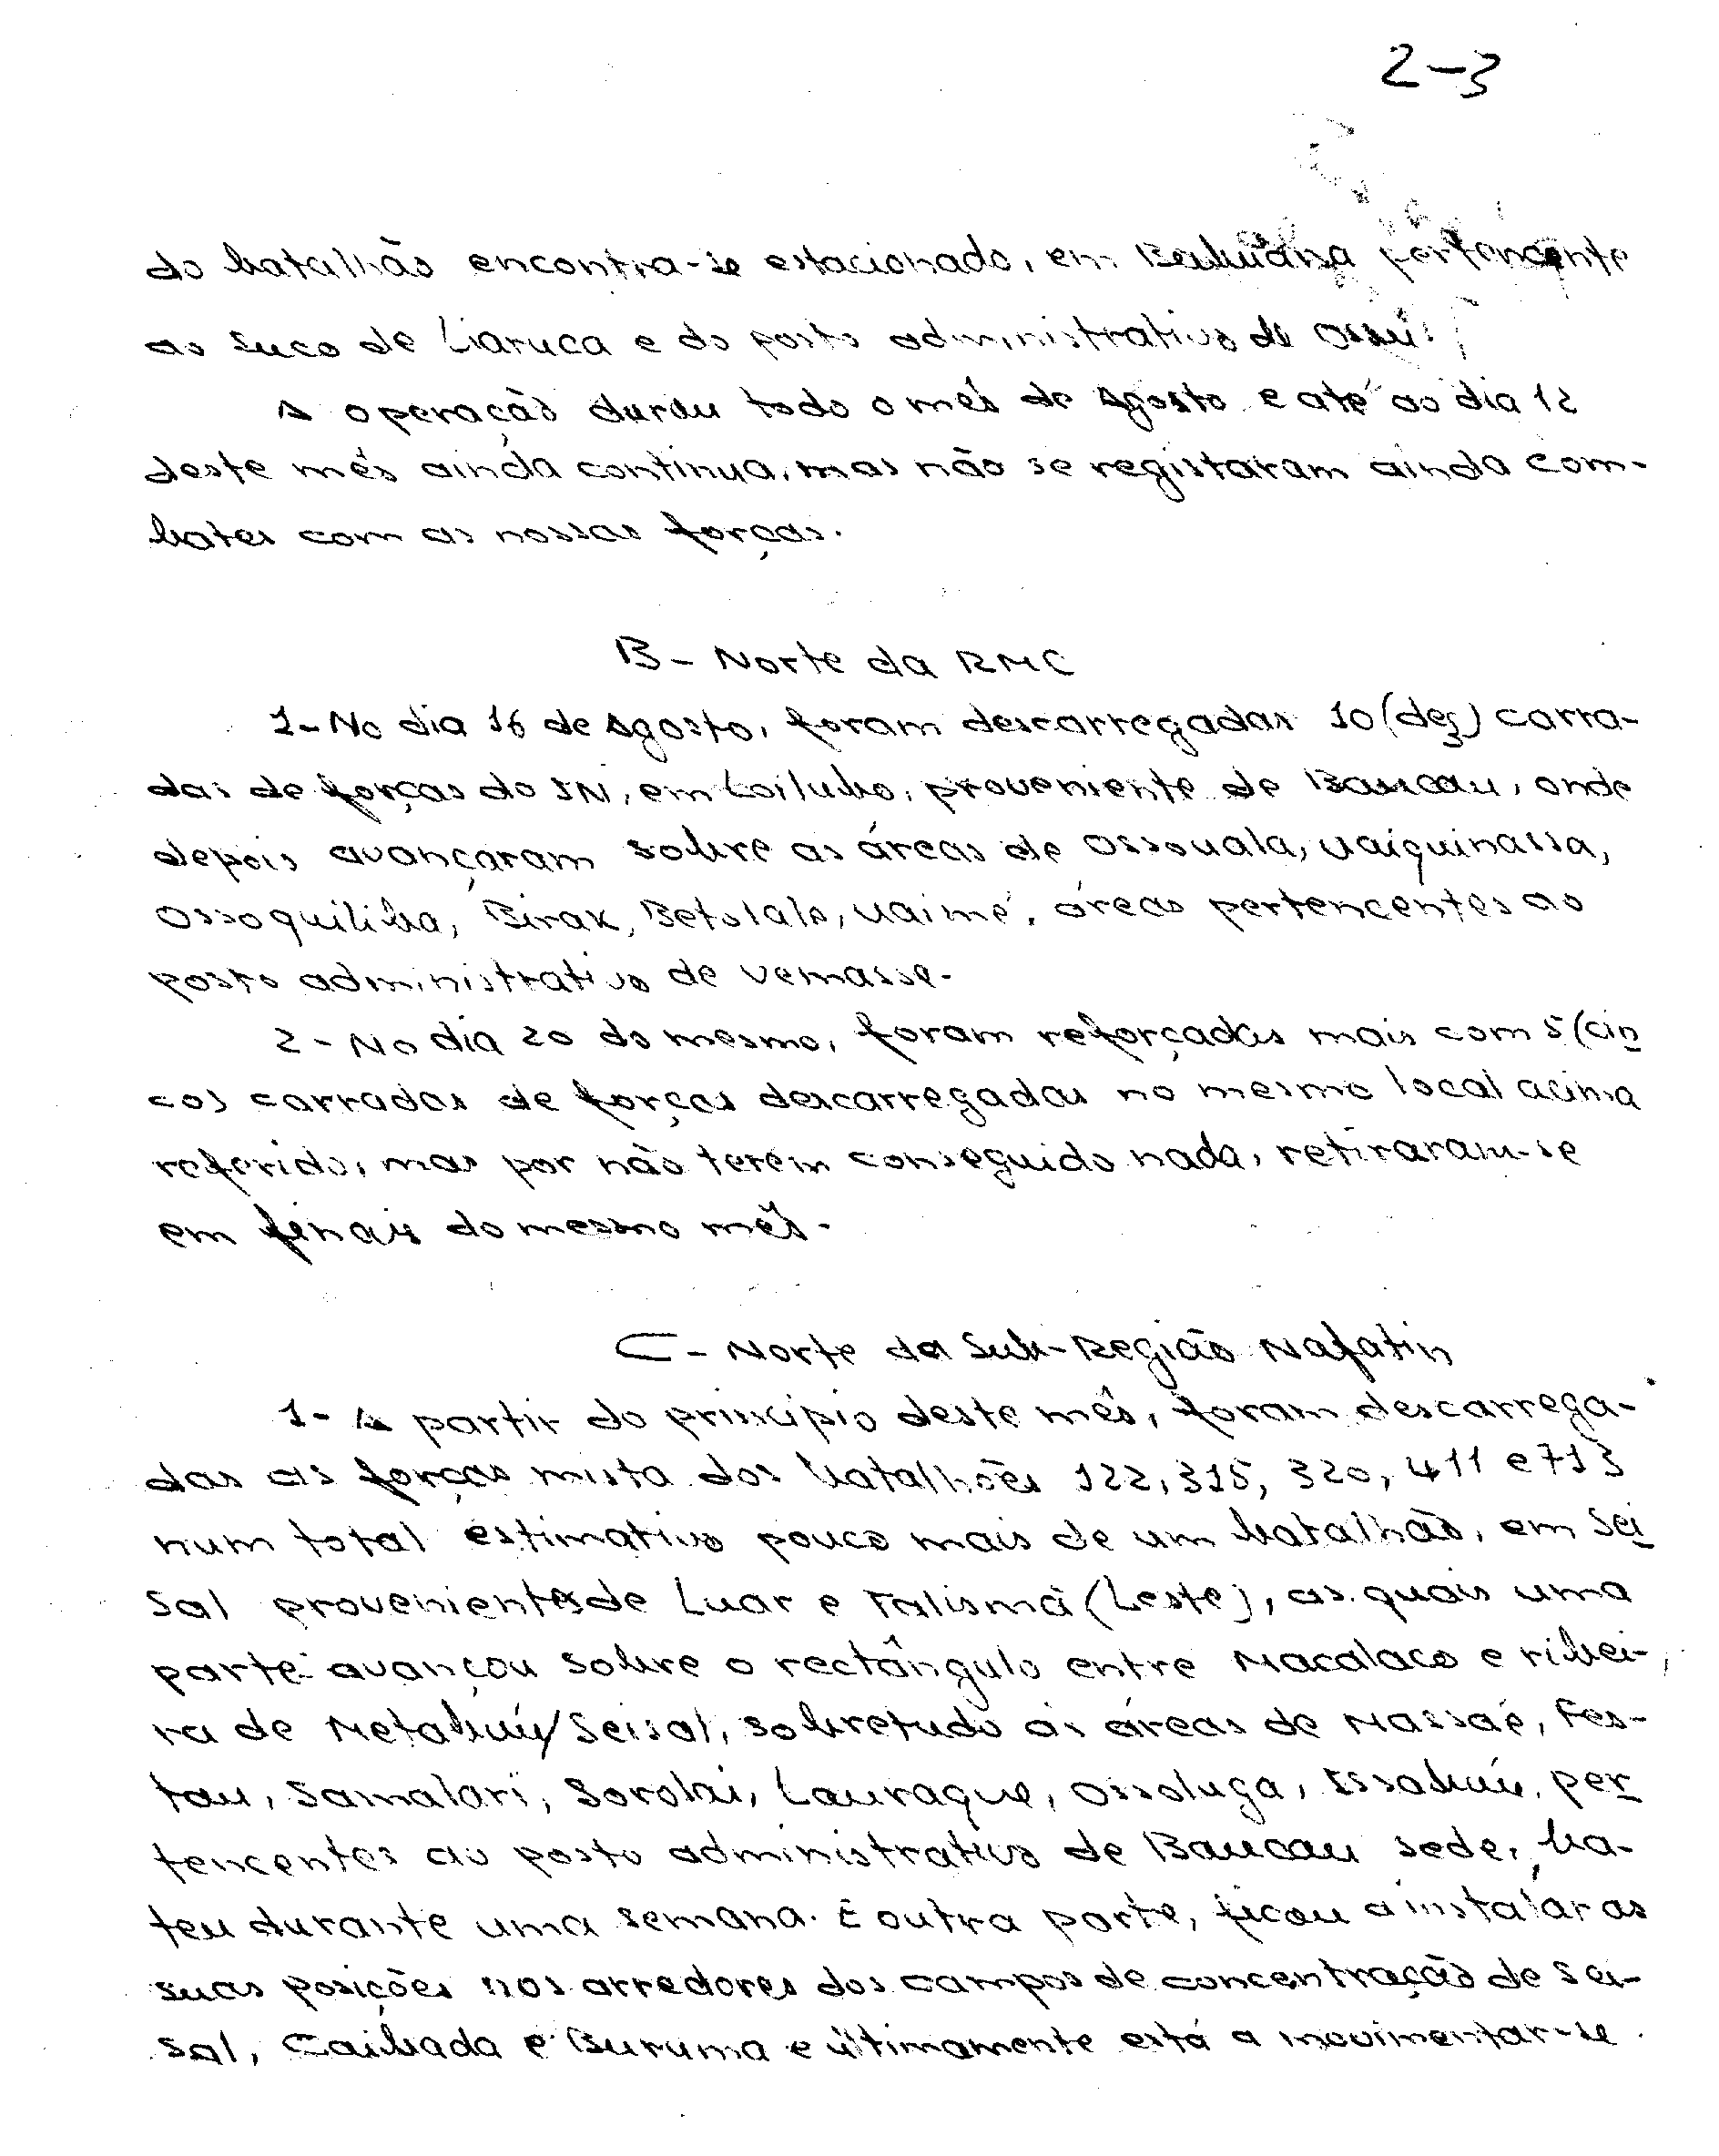 2-3
do batalhão encontra-se estacionado, em pertencente
ao suco de Liaruca e do posto administrativo de Ossú.
A operação durou todo o mês de Agosto e até ao dia 12
deste mês ainda continua, mas não se registaram ainda com-
bates com as nossas forças.
B - Norte da RMC
1- No dia 16 de Agosto, foram descarregadas 10 (dez) carra-
das de forças do IN, em Loilubo, proveniente de Baucau, onde
depois avançaram sobre as áreas de Ossouala, Uaiquinassa,
Ossoquiliba, Birak, Betolale, Uaimé, áreas pertencentes ao
posto administrativo de Vemasse.
2 - No dia 20 do mesmo, foram reforçadas mais com 5 (cin
co) carradas de forças descarregadas no mesmo local acima
referido, mas por não terem conseguido nada, retiraram-se
em finais do mesmo mês.
C - Norte da Sub-Região Nafatin
1- A partir do princípio deste mês, foram descarrega-
das as forças mista dos batalhões 122, 315, 320, 411 e 713
num total estimativo pouco mais de um batalhão, em Sei
Sal provenientes de Luar e Falismá (Leste), as quais uma
parte avançou sobre o rectângulo entre Macalaco e ribei-
ra de Metabuú/Seisal, sobretudo as áreas de Massaé, Fes-
tau, Samalari, Sorobai, Lauraque, Ossoluga, Issabuú, per
tencentes ao posto administrativo de Baucau sede, ba-
teu durante uma semana. E outra parte, ficou a instalar as
suas posições nos arredores dos campos de concentração de Sei-
sal, Caibada e Buruma e ultimamente está a movimentar-se.